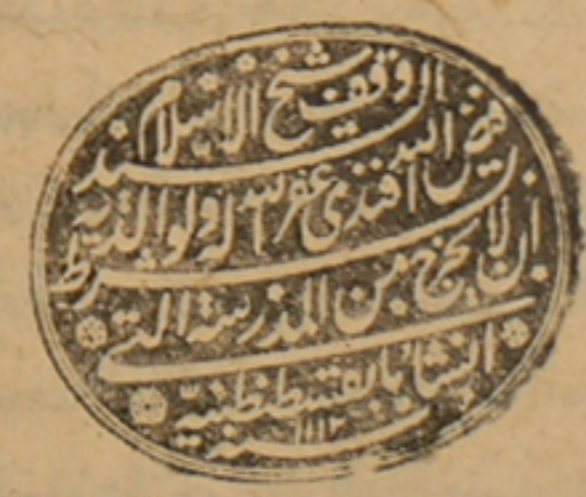 وقف شيخ الاسلام
السيد فيض الله افندى غفر الله له ولوالديه
بشرط ان لا يخرج من المدرسة التى
انشأها بقسطنطينية
سنة ١١١٣